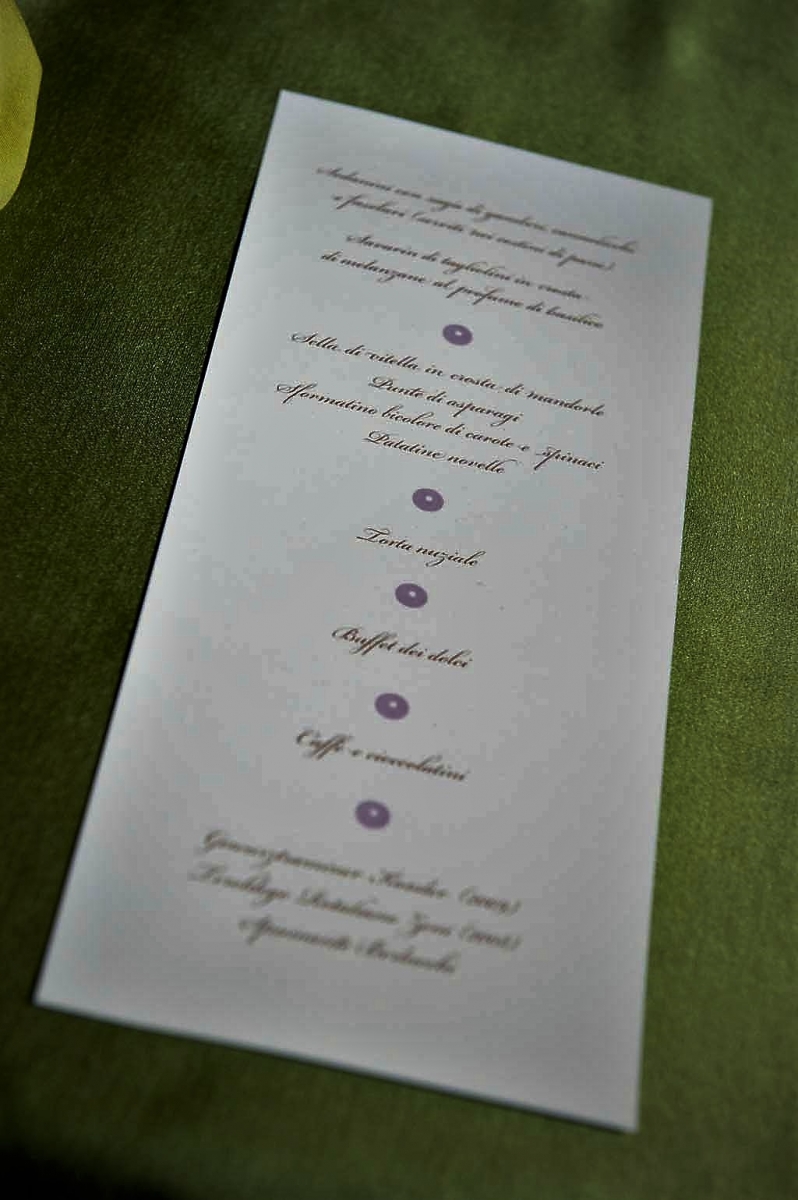 con di
e fasolari (serviti nei cestini di pane)
Savarin di tagliolini in crosta
di melanzane al profumo di basilico
Sella di vitella in crosta di mandorle
Punte di asparagi
Sformatino bicolore di carote e spinaci
Patatine novelle
Torta nuziale
Buffet dei dolci
Caffè e cioccolatini
Gewurztraminer
Teroldego Rotaliano Zeni
Spumante